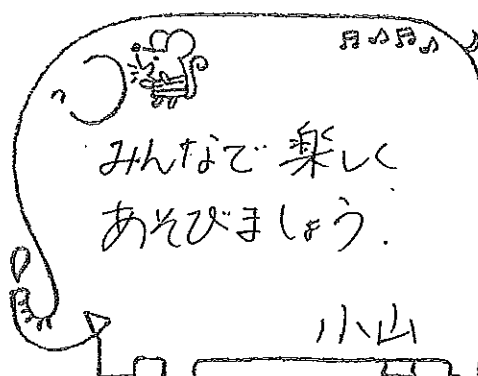 みんなで楽しく
あそびましょう.
小山